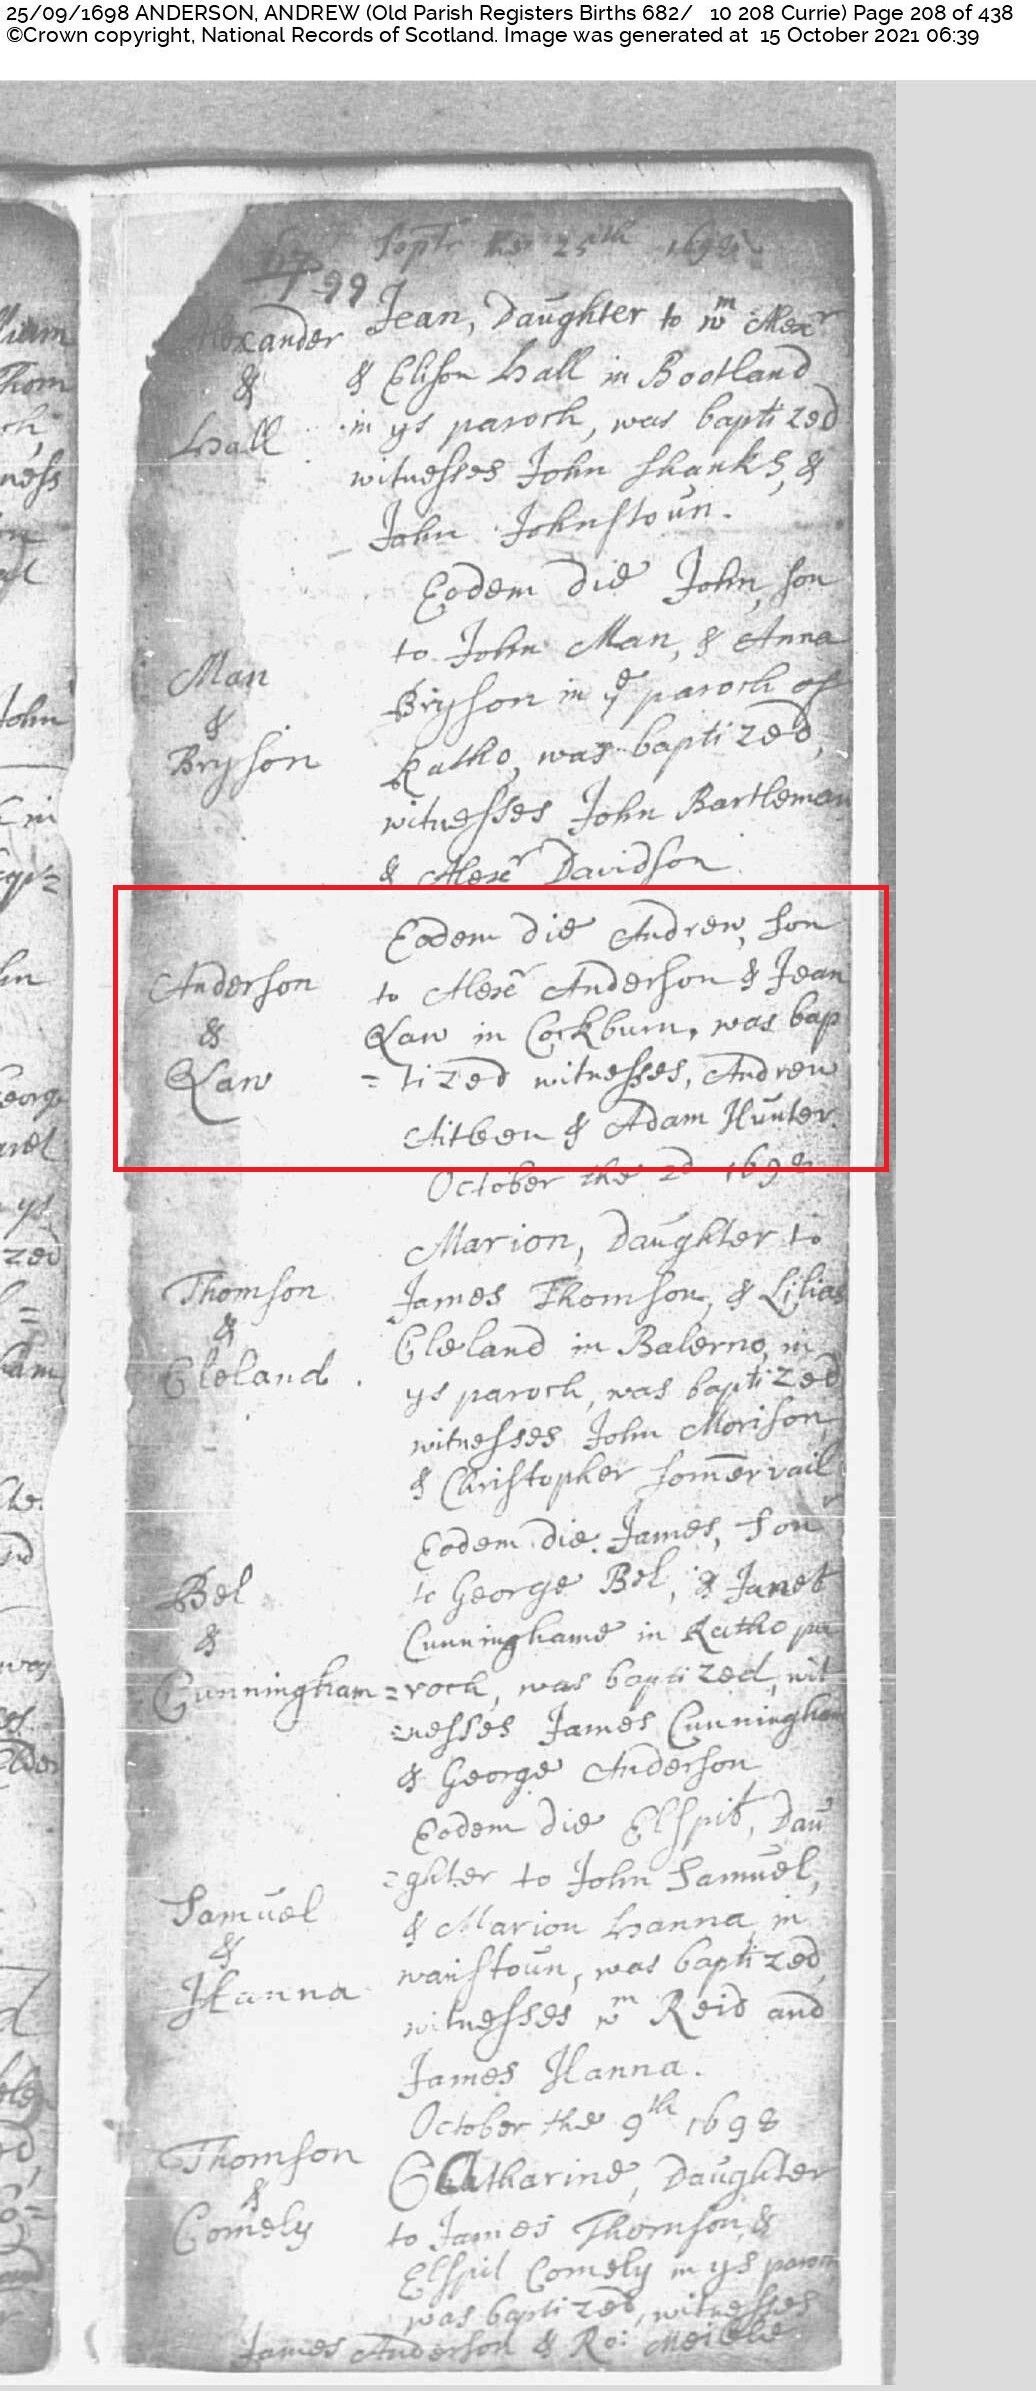 25/09/1698 ANDERSON, ANDREW (Old Parish Registers Births 682/ 10 208 Currie) Page 208 of 438
©Crown copyright, National Records of Scotland. Image was generated at 15 October 2021 06:39
Septr the 25th 1698
99
Alexander
&
Hall
Jean, Daughter to Wm Alexr
& Elison Hall in Bootland
in ys paroch, was baptized
witnesses John Shanks, &
John Johnstoun.
Man
&
Bryson
Eodem die John, son
to John Man, & Anna
Bryson in ye paroch of
Ratho, was baptized,
witnesses John Bartleman
& Alexr Davidson
Anderson
&
Law
Eodem die Andrew, son
to Alexr Anderson & Jean
Law in Cockburn, was bap
=tized witnesses, Andrew
Aitken & Adam Hunter.
October the 2d 1698
Thomson
&
Cleland.
Marion, Daughter to
James Thomson, & Lilias
Cleland in Balerno, in
ys paroch, was baptized
witnesses John Morison,
& Christopher Somervail
Bel
&
Cunningham
Eodem die. James, Son
to George Bel, & Janet
Cunninghame in Ratho pa
=roch, was baptized, wit
=nesses James Cunningham
& George Anderson
Samuel
&
Hanna
Eodem die Elspit, Dau
=ghter to John Samuel,
& Marion Hanna in
was baptized,
witnesses Wm Reid and
James Hanna.
October the 9th 1698
Thomson
&
Comely
Catharine, Daughter
to James Thomson, &
Elspit Comely in ys paroch
was baptized, witnesses
James Anderson & Ro: Meikle